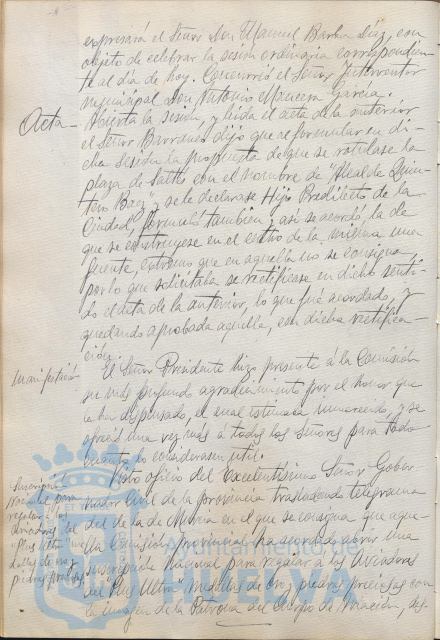 expresará el Señor Don Manuel Barba Díaz, con
objeto de celebrar la sesión ordinaria correspondien-
te al día de hoy. Concurrió el Señor Interventor
municipal Don Antonio Mancera García.
Acta-
Abierta la sesión, y leida el acta de la anterior
el Señor Barranco dijo que al formular en di-
cha sesión la propuesta de que se rotulase la
plaza de Saltés con el nombre de "Alcalde Quin-
tero Baez" y se le declarase Hijo Predilecto de la
Ciudad, formuló también y así se acordó, la de
que se construyese en el centro de la misma una
fuente, extremo que en aquella no se consigna,
por lo que solicitaba se rectificase en dicho senti-
do el acta de la anterior, lo que fué acordado, y
quedando aprobada aquella, con dicha rectifica-
ción.
Manifestación
El Señor Presidente hizo presente á la Comisión
su más profundo agradecimiento por el honor que
le ha dispensado, el cual estimaba inmerecido, y se
ofreció una vez más á todos los Señores para todo
cuanto lo consideraren útil.
Suscripción
Nacional para
regalar a los
aviadores del
"Plus Ultra" me-
dallas de oro y
piedras preciosas
Visto oficio del Excelentísimo Señor Gober-
nador Civil de la provincia trasladando telegrama
del de la de Murcia en el que se consigna que aque-
lla Comisión provincial ha acordado abrir una
suscripción Nacional para regalar a los Aviadores
del "Plus Ultra" medallas de oro y piedras preciosas con
la imagen de la Patrona del Cuerpo de Aviación, des-
Ayuntamiento de